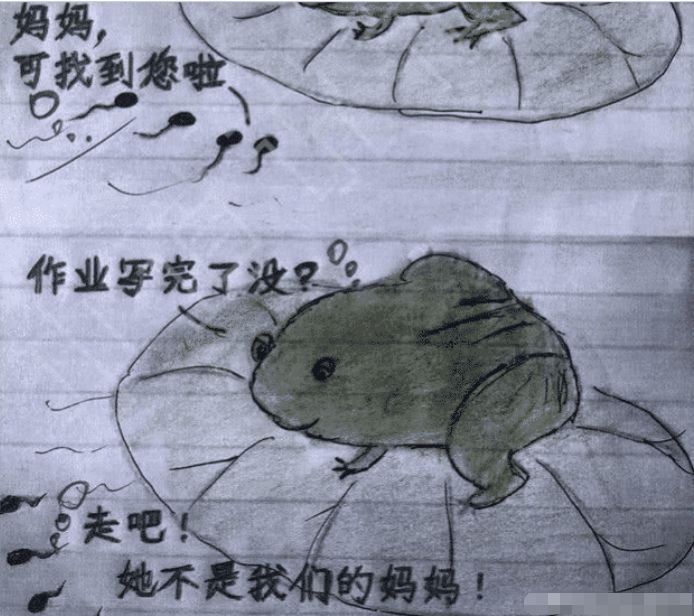 妈妈,
可找到您啦
作业写完了没?
走吧!
她不是我们的妈妈!